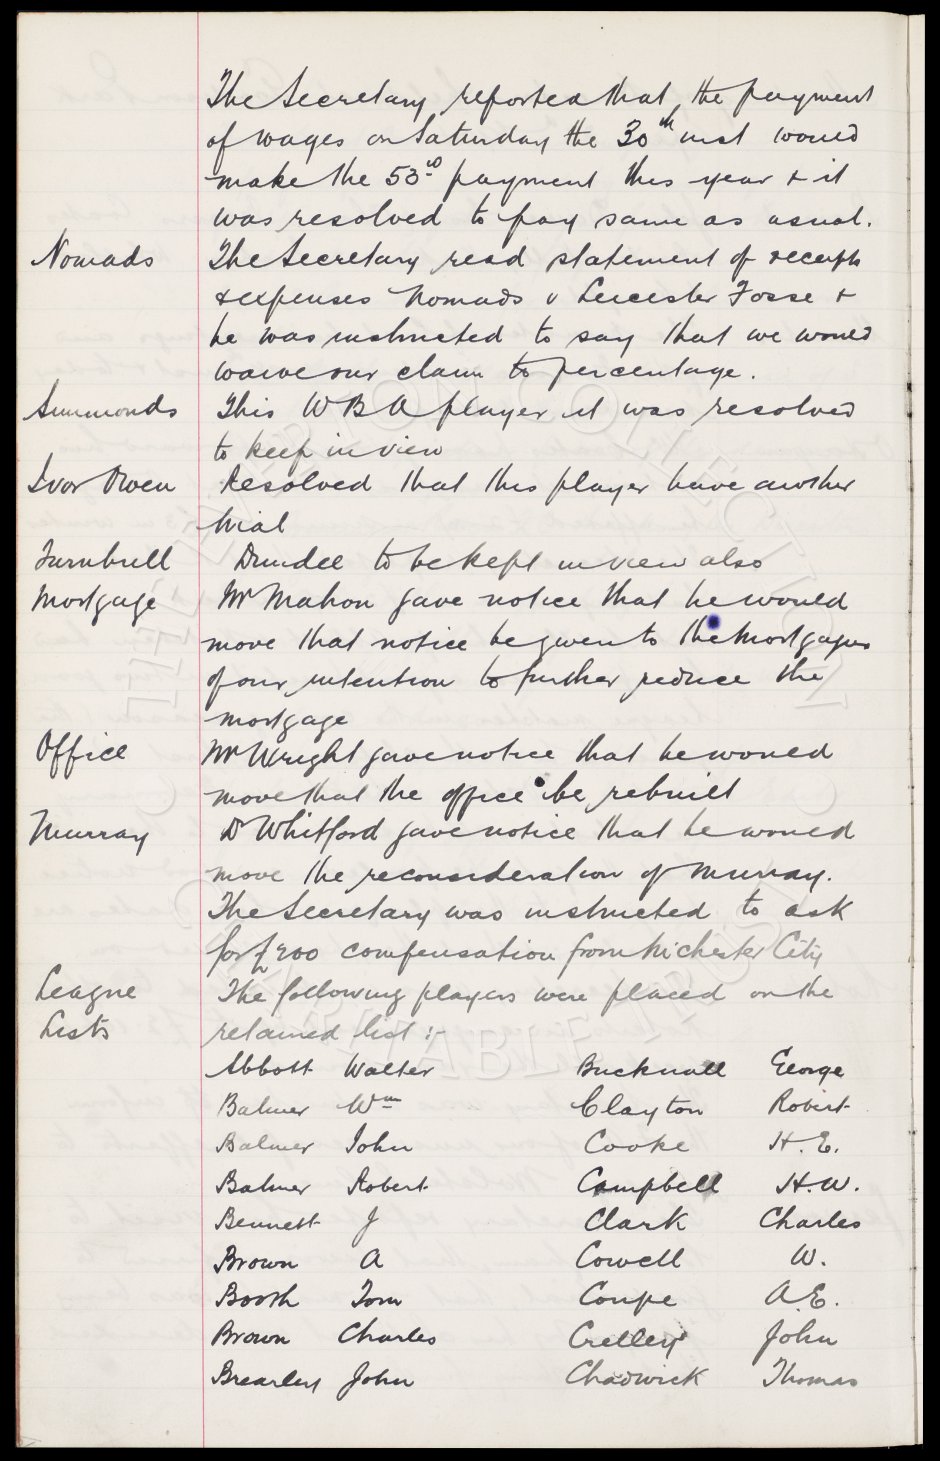 The Secretary reported that the payment
of wages on Saturday the 30th inst would
make the 53rd payment this year & it
was resolved to pay same as usual.
Nomads The Secretary read statement of receipts
& expenses Nomads v Leicester Fosse &
he was instructed to say that we would
waive our claim to percentage.
Simmonds This W B A player it was resolved
to keep in view
Ivor Owen Resolved that this player have another
trial
Turnbull Dundee to be kept in view also
Mortgage Mr Mahon gave notice that he would
move that notice be given to the Mortgagees
of our intention to further reduce the
mortgage
Office Mr Wright gave notice that he would
move that the office be rebuilt
Murray Dr Whitford gave notice that he would
move the reconsideration of Murray.
The Secretary was instructed to ask
for £200 compensation from Michester City
League The following players were placed on the
Lists retained list :-
Abbott Walter Bucknall George
Balmer Wm Clayton Robert
Balmer John Cooke H. E.
Balmer Robert Campbell H. W.
Bennett J Clark Charles
Brown A Cowell W.
Booth Tom Coupe A. E.
Brown Charles Crelley John
Brearley John Chadwick Thomas